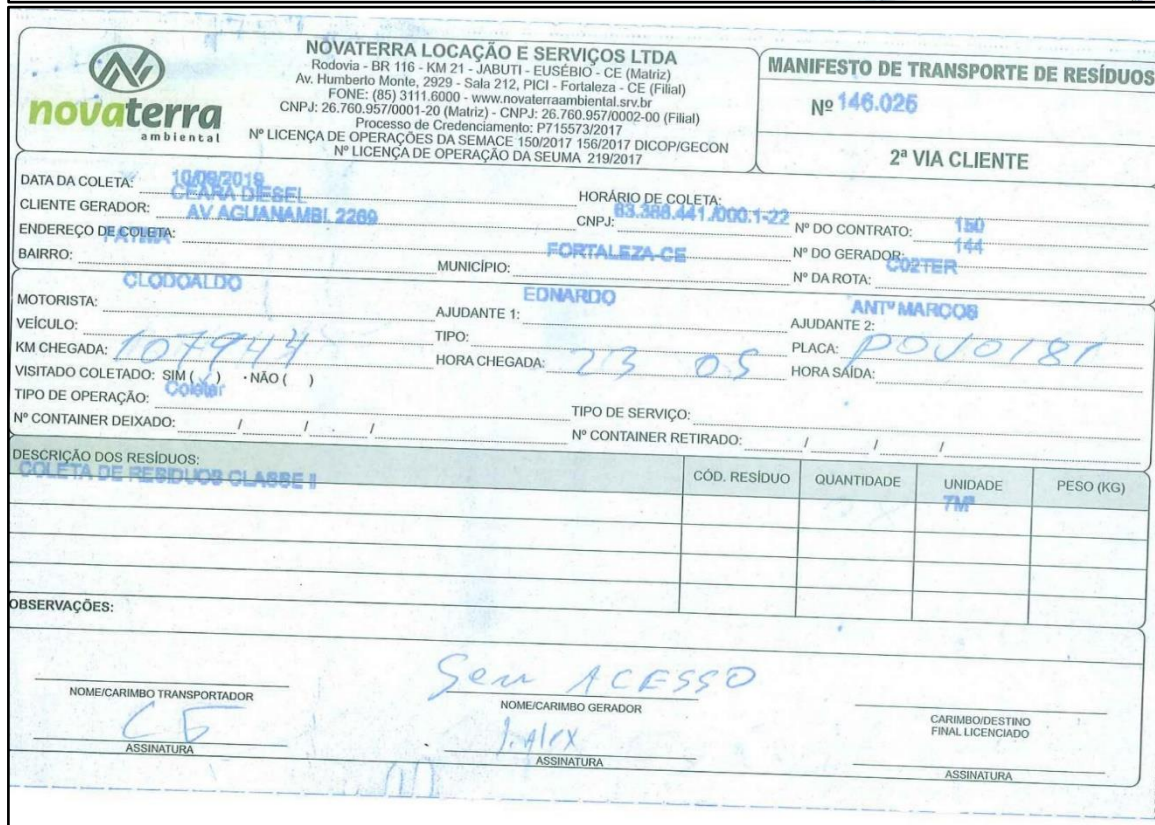 novaterra
ambiental
NOVATERRA LOCAÇÃO E SERVIÇOS LTDA
Rodovia - BR 116 - KM 21 - JABUTI - EUSÉBIO - CE (Matriz)
Av. Humberto Monte, 2929 - Sala 212, PICI - Fortaleza - CE (Filial)
FONE: (85) 3111.6000 - www.novaterraambiental.srv.br
CNPJ: 26.760.957/0001-20 (Matriz) - CNPJ: 26.760.957/0002-00 (Filial)
Processo de Credenciamento: P715573/2017
Nº LICENÇA DE OPERAÇÕES DA SEMACE 150/2017 156/2017 DICOP/GECON
Nº LICENÇA DE OPERAÇÃO DA SEUMA 219/2017
MANIFESTO DE TRANSPORTE DE RESÍDUOS
Nº 146.025
2ª VIA CLIENTE
DATA DA COLETA: 10/09/2019 HORÁRIO DE COLETA:
CLIENTE GERADOR: CEARA DIESEL CNPJ: 63.388.441./000.1-22 Nº DO CONTRATO: 150
ENDEREÇO DE COLETA: AV AGUANAMBI, 2269 Nº DO GERADOR: 144
BAIRRO: FATIMA MUNICÍPIO: FORTALEZA-CE Nº DA ROTA: C02TER
MOTORISTA: CLODOALDO AJUDANTE 1: EDNARDO AJUDANTE 2: ANTº MARCOS
VEÍCULO: TIPO: PLACA: POV0181
KM CHEGADA: 107944 HORA CHEGADA: 23 05 HORA SAÍDA:
VISITADO COLETADO: SIM ( ) NÃO ( )
TIPO DE OPERAÇÃO: Coletar TIPO DE SERVIÇO:
Nº CONTAINER DEIXADO: / / / Nº CONTAINER RETIRADO: / / /
DESCRIÇÃO DOS RESÍDUOS: CÓD. RESÍDUO QUANTIDADE UNIDADE PESO (KG)
COLETA DE RESIDUOS CLASSE II 7M³
OBSERVAÇÕES:
Sem ACESSO
NOME/CARIMBO TRANSPORTADOR NOME/CARIMBO GERADOR CARIMBO/DESTINO
FINAL LICENCIADO
J. Alex
ASSINATURA ASSINATURA ASSINATURA